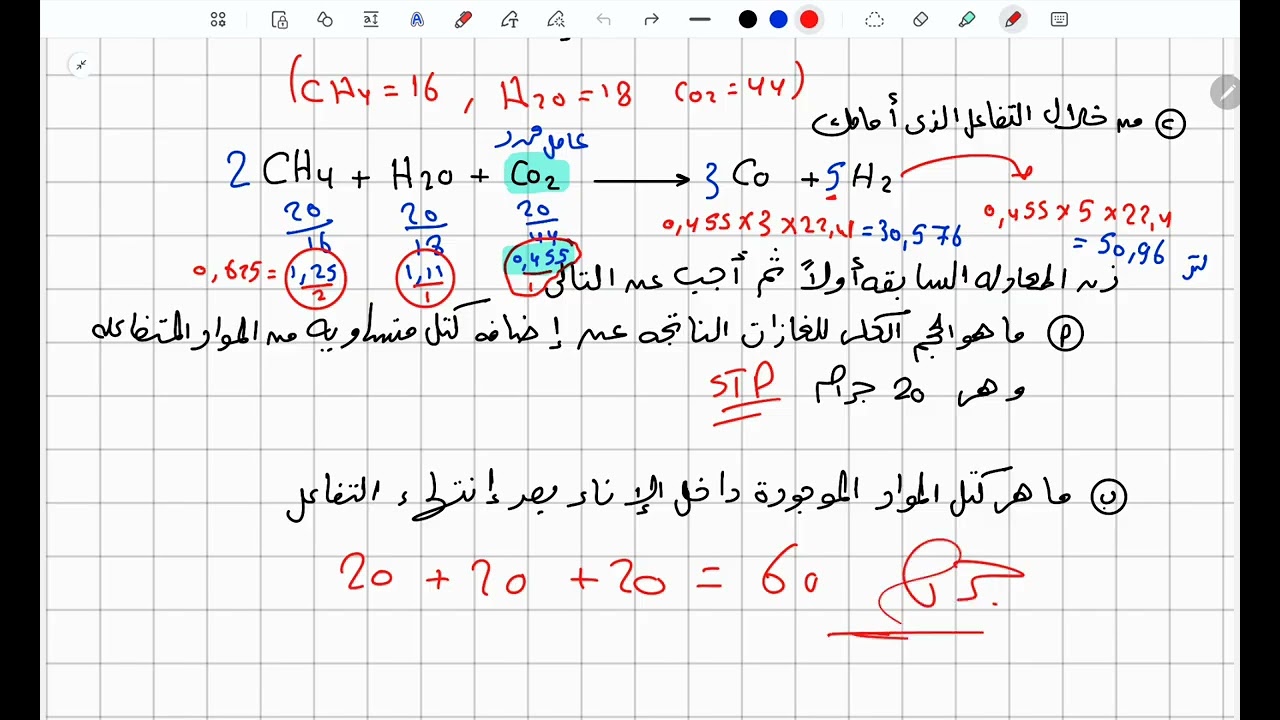 (CH4 = 16 , H2O = 18 CO2 = 44)
ج من خلال التفاعل الذى أمامك
عامل محدد
2 CH4 + H2O + CO2 ⟶ 3 CO + 5 H2
20/16 20/18 20/44
0,455 x 3 x 22,4 = 30,576
0,455 x 5 x 22,4 = 50,96 لتر
0,625 = 1,25/2 1,11/1 0,455/1
زن المعادله السابقه أولاً ثم أجب عن التالى
P ما هو الحجم الكلى للغازات الناتجه عن إضافه كتل متساويه من المواد المتفاعله
وهى 20 جرام STP
ب ما هى كتل المواد الموجودة داخل الإناء بعد إنتهاء التفاعل
20 + 20 + 20 = 60